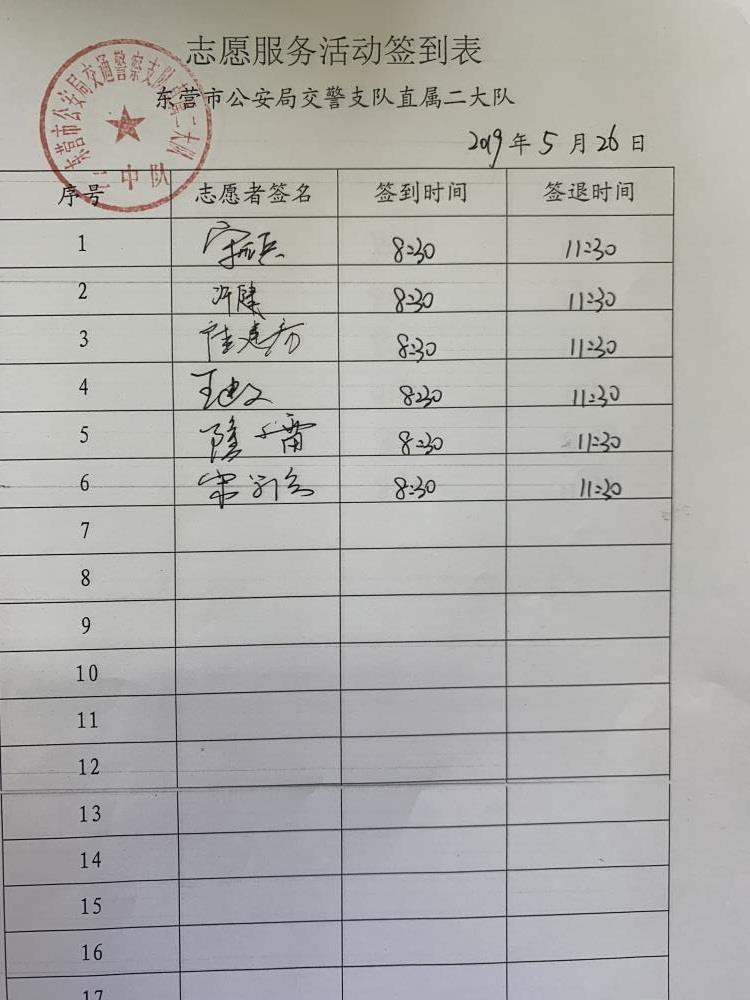 志愿服务活动签到表
东营市公安局交警支队直属二大队
东营市公安局交通警察支队直属二大队
二中队
2019年5月26日
序号 志愿者签名 签到时间 签退时间
1 8:30 11:30
2 许建 8:30 11:30
3 8:30 11:30
4 8:30 11:30
5 8:30 11:30
6 8:30 11:30
7
8
9
10
11
12
13
14
15
16
17